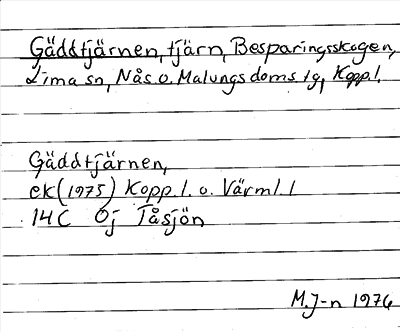 Gäddtjärnen, tjärn, Besparingsskogen,
Lima sn, Nås o. Malungs doms.ig, Kopp. l.
Gäddtjärnen,
ek (1975) Kopp. l. o. Värml. l
14C 0j Tåsjön
M.J-n 1976